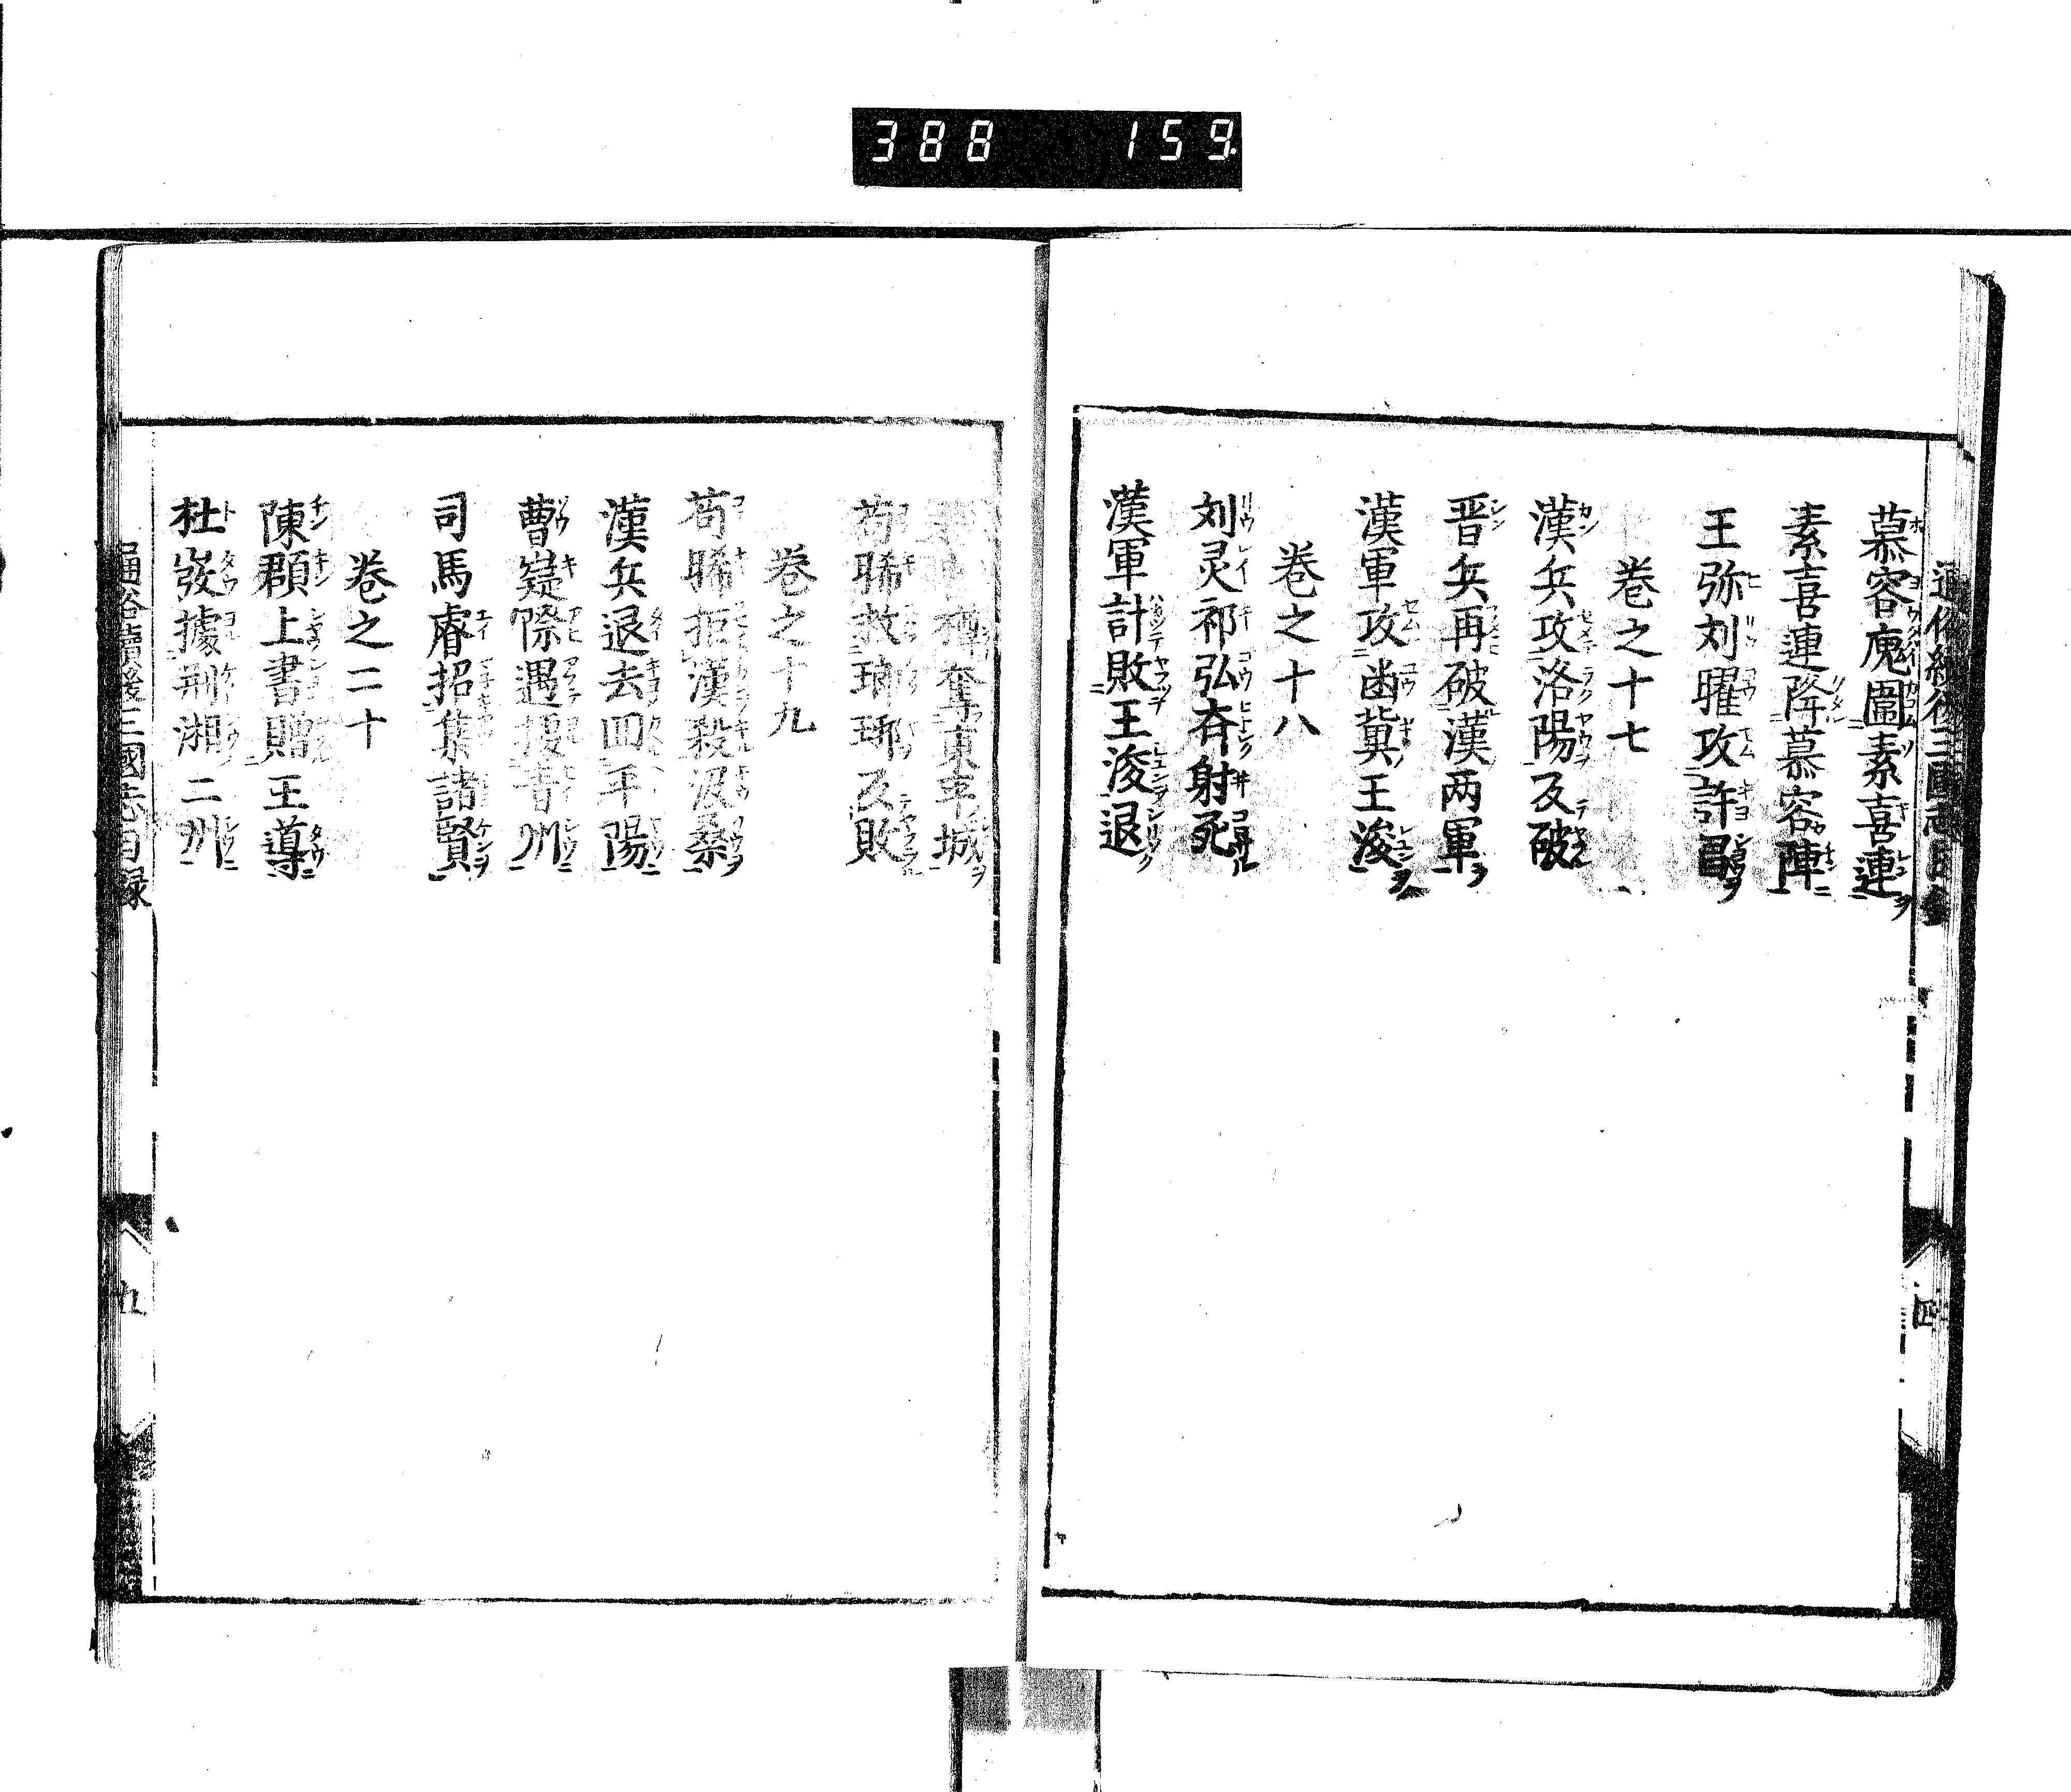 388 159
通俗續後三國志目録
慕容廆圍素喜連
素喜連降慕容陣
王弥刘曜攻許昌
卷之十七
漢兵攻洛陽反破
晋兵再破漢两軍
漢軍攻凾冀王浚
卷之十八
刘灵祁弘斉射死
漢軍計敗王浚退
奪東平城
苟晞救瑯琊反敗
卷之十九
苟晞拒漢殺汲桑
漢兵退去囬平陽
曹嶷際遇搜青州
司馬睿招集諸賢
卷之二十
陳頵上書贈王導
杜弢據荆湘二州
通俗續後三國志目録
四
五